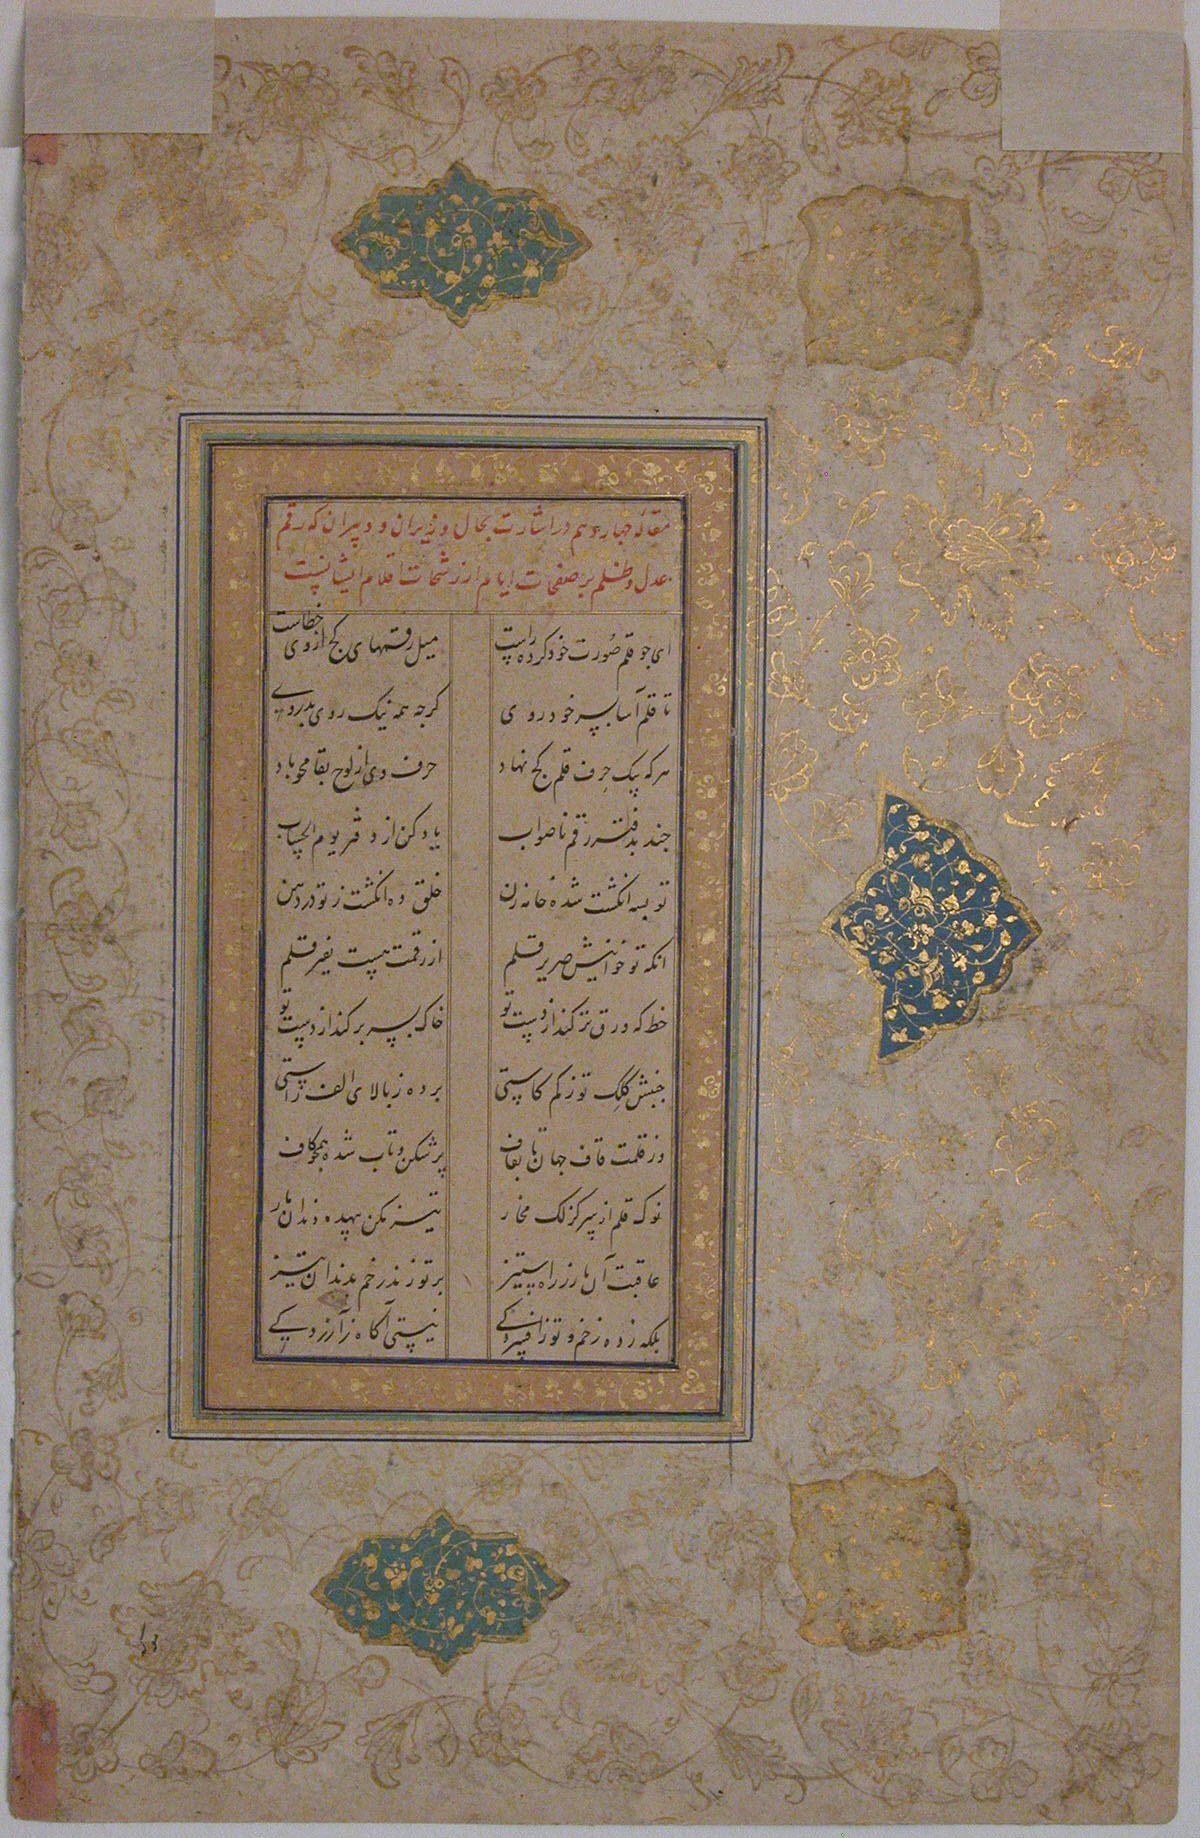 مقاله چهاردهم در اشارت بحال وزیران و دبیران که رقم
عدل و ظلم بر صفحات ایام از رشحات اقلام ایشانست
ای چو قلم صورت خود کرده راست میل رقمهای کج از وی خطاست
تا قلم آسا بسر خود روی کرچه همه نیک روی بد روی
هر که بیک حرف قلم کج نهاد حرف وی از لوح بقا محو باد
چند بدفتر رقم ناصواب یاد کن از دفتر یوم الحساب
تو بسه انکشت شده خامه زن خلق ده انکشت ز تو در دهن
انکه تو خوانیش صریر قلم از رقمت هست نفیر قلم
خط که ورق تر کند از دست تو خاک بسر بر کند از دست تو
جنبش کلک تو ز کم کاستی برده ز بالای الف راستی
وز قلمت قاف جهان تا بقاف پر شکن و تاب شده همچو کاف
نوک قلم از سر کزلک مخار تیز مکن بیهده دندان مار
عاقبت آن مار ز راه ستیز بر تو زند زخم بدندان تیز
بلکه زده زخم و تو ز افسردکی نیستی آکاه ز آزردکی